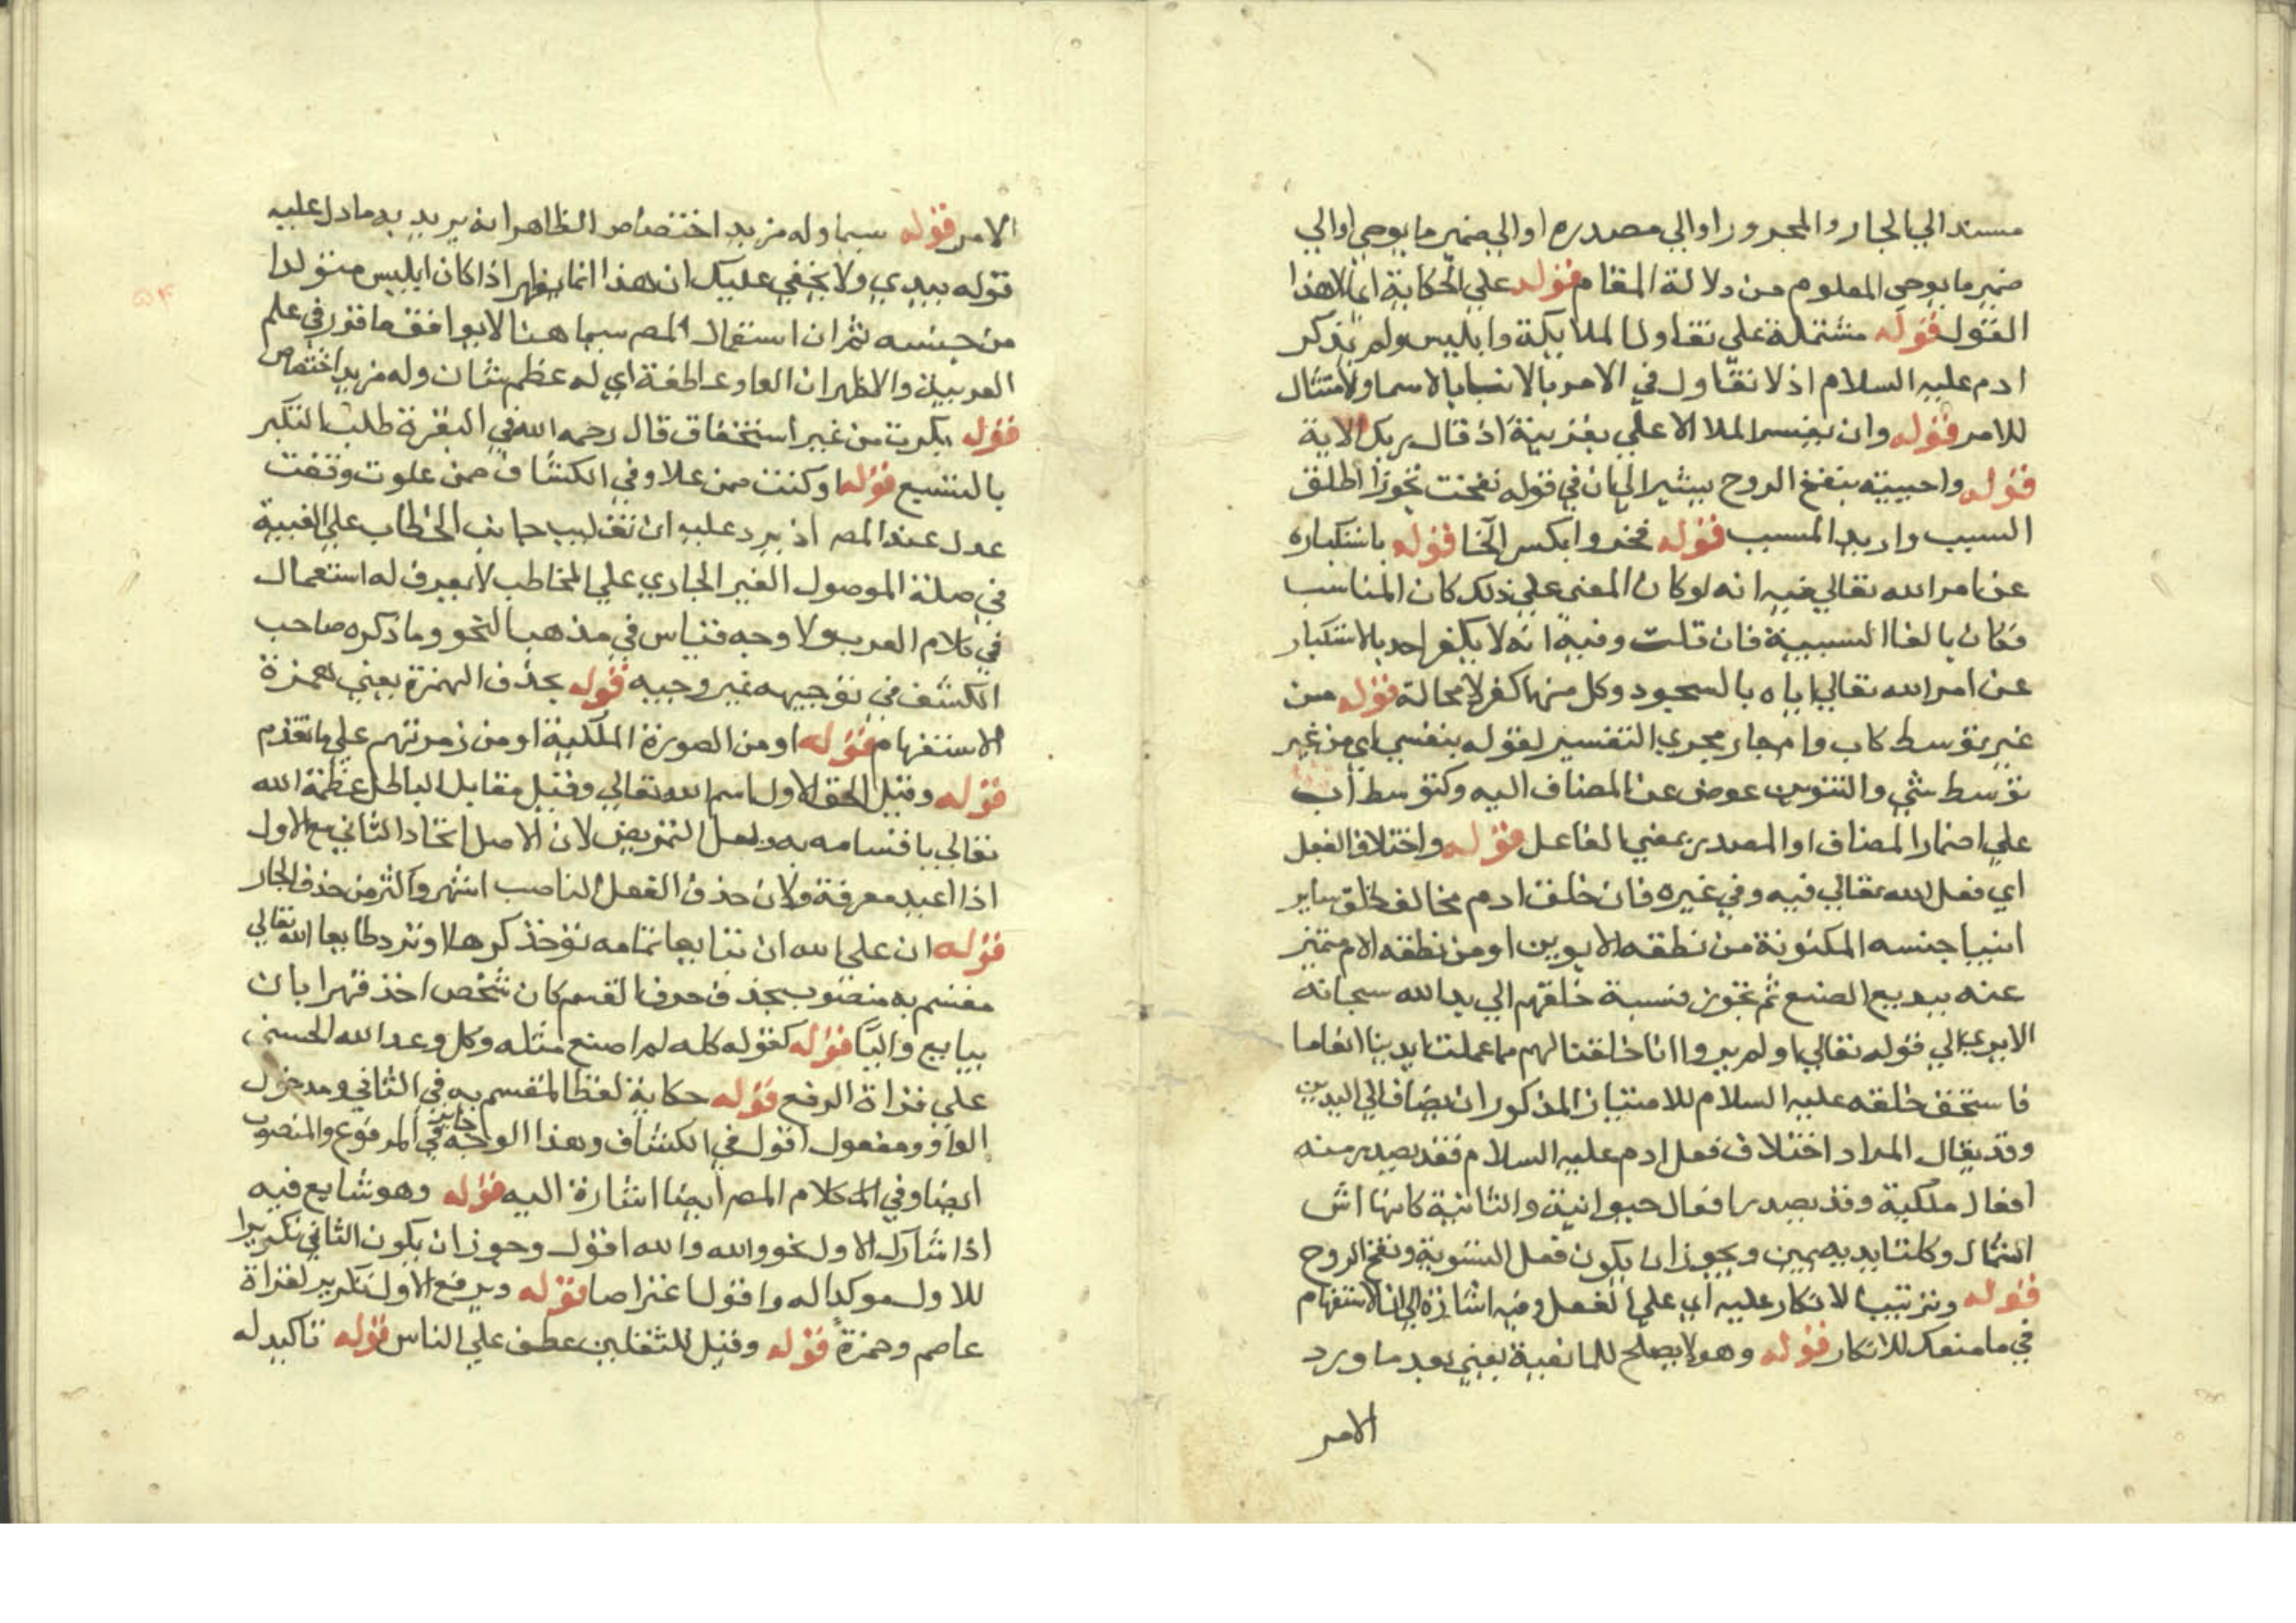 مسندا الي الجار والمجرور او الي مصدره او الي ضمير ما يوحي او الي
ضمير ما يوحي المعلوم من دلالة المقام قوله علي الحكاية اي الا هذا
القول قوله مشتملة علي تقاول الملايكة وابليس ولم يذكر
ادم عليه السلام اذ لا تقاول في الامر بالانبا بالاسما ولا امتثال
للامر قوله وان يفسر الملا الاعلي بقرينة اذ قال ربك الاية
قوله واحييته بنفخ الروح يشير الي ان في قوله نفخت تجوزا اطلق
السبب واريد المسبب قوله فخروا بكسر الخا قوله باستكباره
عن امر الله تعالي فيه انه لو كان المعني علي ذلك كان المناسب
فكان بالفا السببية فان قلت وفيه انه لا يكفر احد بالاستكبار
عن امر الله تعالي اياه بالسجود وكل منها كفر لا محالة قوله من
غير توسط كاب وام جار مجري التفسير لقوله بنفسي اي من غير
توسط شي والتنوين عوض عن المضاف اليه وكتوسط اب
علي اضمار المضاف او المصدر بمعني الفاعل قوله واختلاف الفعل
اي فعل الله تعالي فيه وفي غيره فان خلقت ادم مخالف لخلق ساير
ابنيا جنسه المكنونة من نطفه الابوين او من نطفه الام متميز
عنه ببديع الصنع ثم تجوز نسبة خلقهم الي يد الله سبحانه
الا يري الي قوله تعالي اولم يروا انا خلقنا لهم مما عملت ايدينا انعاما
فاستحق خلقه عليه السلام للامتياز المذكور ان يضاف الي اليدين
وقد يقال المراد اختلاف فعل ادم عليه السلام فقد يصدر منه
افعال ملكية وقد يصدر افعال حيوانية والثانية كانها اش
الشمال وكلتا يديه يمين ويجوز ان يكون فعل التسوية ونفخ الروح
قوله وترتيب الانكار عليه اي علي الفعل وفيه اشارة الي ان الاستفهام
في ما منعك للانكار قوله وهو لا يصلح للمانعية يعني بعد ما ورد
الامر
الامر قوله سيما وله مزيد اختصاص الظاهر انه يريد به ما دل عليه
قوله بيدي ولا يخفي عليك ان هذا انما يظهر اذا كان ابليس متولدا
من جنسه ثم ان استعمال المصر سيما هنا لا يوافق ما قرر في علم
العربية والاظهر ان الواو عاطفة اي له عظم شان وله مزيد اختصاص
قوله تكبرت من غير استحقاق قال رحمه الله في البقرة طلب التكبر
بالتشبع قوله او كنت ممن علا وفي الكشاف ممن علوت وفقت
عدل عنه المصر اذ يرد عليه ان تغليب جانب الخطاب علي الغيبة
في صلة الموصول الغير الجاري علي المخاطب لا يعرف له استعمال
في كلام العرب ولا وجه قياس في مذهب النحو وما ذكره صاحب
الكشف في توجيهه غير وجيه قوله بحذف الهمزة يعني همزة
الاستفهام قوله او من الصورة الملكية او من زمرتهم علي ما تقدم
قوله وقيل الحق الاول اسم الله تعالي وقيل مقابل الباطل عظمة الله
تعالي باقسامه به ولعل التمريض لان الاصل اتحاد الثاني مع الاول
اذا اعيد معرفة ولان حذف الفعل الناصب اشهر واكثر من حذف الجار
قوله ان علي الله ان تبايعا تمامه تؤخذ كرها او ترد طايعا الله تعالي
مقسم به منصوب بحذف حرف القسم كان شخص اخذ قهرا بان
يبايع واليّا قوله كقوله كله لم اصنع مثله وكل وعد الله الحسني
علي قراة الرفع قوله حكاية لفظ المقسم به في الثاني ومدخول
الواو ومفعول اقول في الكشاف وهذا الوجه جايز في المرفوع والمنصوب
ايضا وفي كلام المصر ايضا اشارة اليه قوله وهو شايع فيه
اذا شارك الاول نحو والله والله اقول وجوز ان يكون الثاني تكريرا
للاول موكدا له واقول اعتراضا قوله ويرفع الاول تكرير لقراة
عاصم وحمزة قوله وقيل للثقلين عطف علي الناس قوله تاكيد له